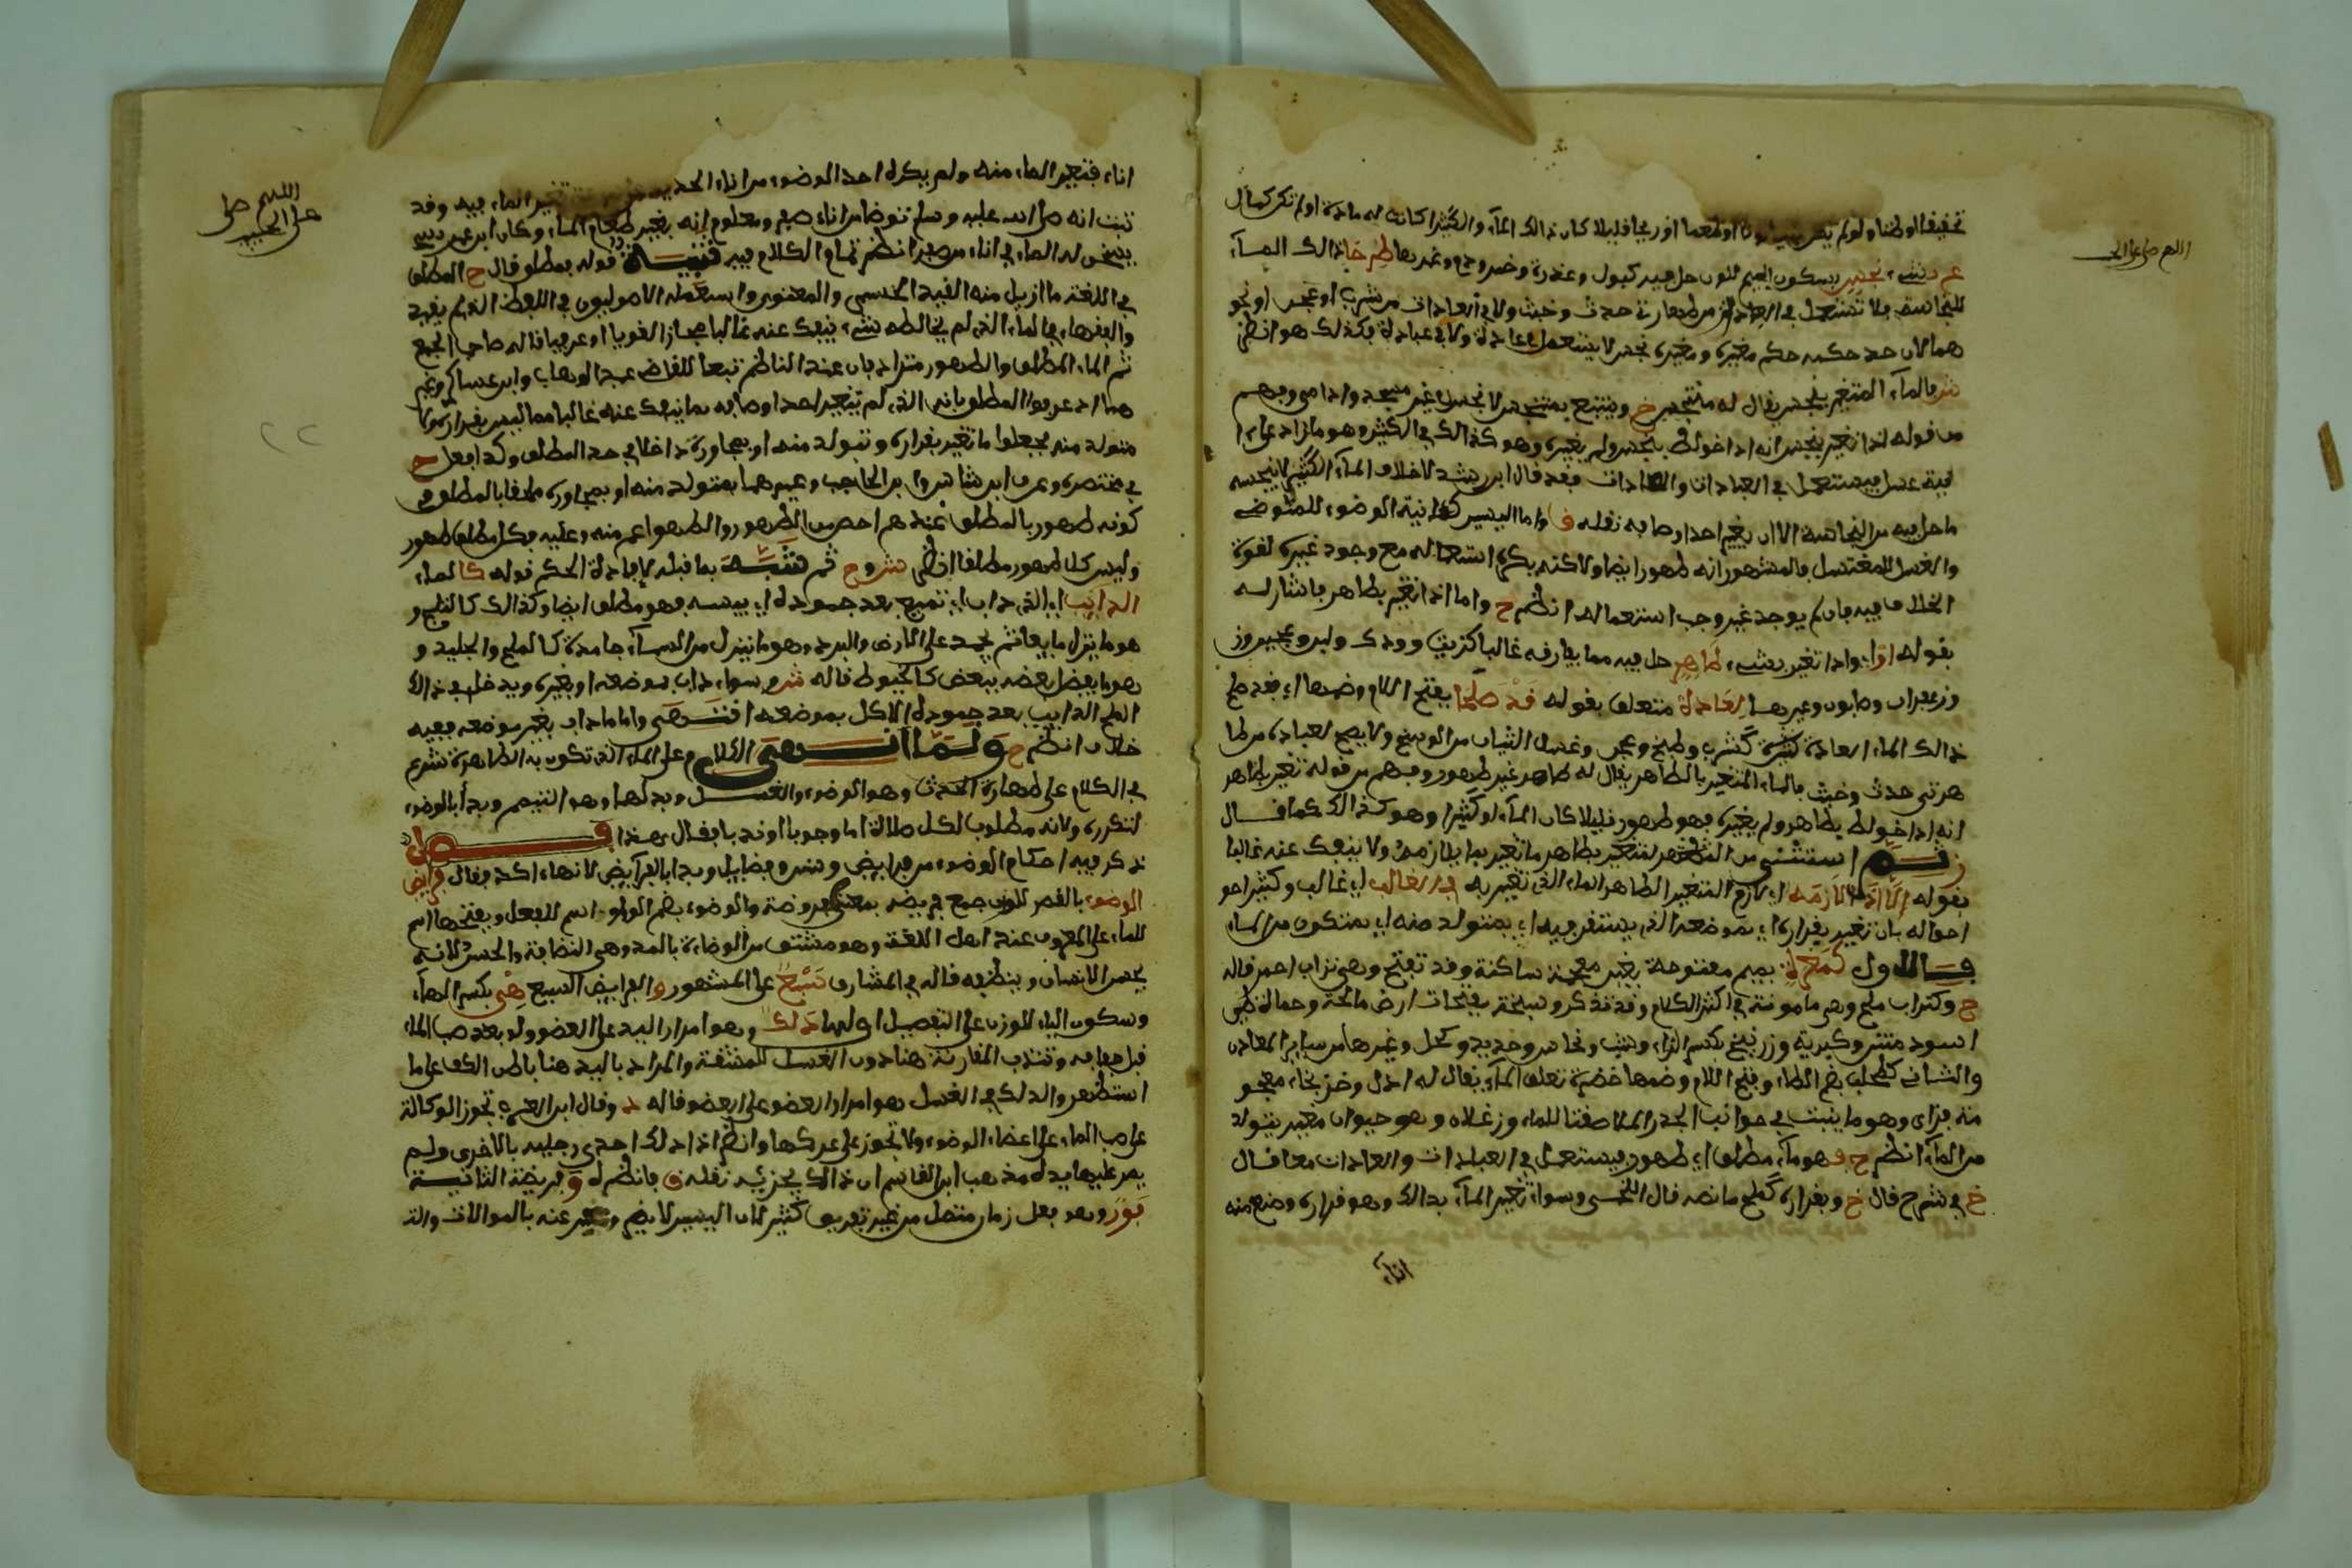 اللهم صل على الحبيب
تحقيقا او ظنا ولو لم يكن لونا او طعما او ريحا قليلا كان ذالك الماء والكثيرا كانت له مادة او لم تكن كمال
بنجس بسكون الجيم للوزن حل فيه كبول وعذرة وخمر ودم وغيرها طرحا ذالك الماء
للنجاسة ولا تستعمل في من طهارة حدث وخبث ولا في العادات من شرب او عجن او نحو
هما لان حكمه حكم مغيره ومغيره نجس لا يستعمل في عادة ولا في عبادة فكذلك هو انظر
ش فالماء المتغير بنجس يقال له متنجس خ وينتفع بمتنجس لا نجس في غير مسجد وادمي وفهم
من قوله اذا تغير بنجس انه اذا خولط بنجس ولم يغيره وهو كذالك في الكثير وهو ما زاد على
فيستعمل في العبادات والعادات فقد قال ابن رشد لا خلاف الماء الكثير لا ينجسه
ما حل فيه من النجاسة الا ان يغير احد اوصافه نقله ق واما اليسير كانية الوضوء للمتوضئ
والغسل للمغتسل فالمشهور انه طهور ايضا ولاكنه يكره استعماله مع وجود غيره لقوة
الخلاف فيه فان لم يوجد غيره وجب استعماله انظر ح واما اذا تغير بطاهر فاشار له
بقوله او اي واذا تغير بشيء طاهر حل فيه مما يفارقه غالبا كزيت وودك ولبن وعجين وز
وزعفران وصابون وغيرها لعادة متعلق بقوله قد صلحا بفتح اللام وضمها اي فقد صلح
ذالك الماء لعادة كشرب وطبخ وعجن وغسل الثياب من الوسخ ولا يصلح لعبادة من طها
هرتي حدث وخبث فالماء المتغير بالطاهر يقال له طاهر غير طهور وفهم من قوله تغير بطاهر
انه اذا خولط بطاهر ولم يغيره فهو طهور قليلا كان الماء او كثيرا وهو كذالك كما قال
ثم استثنى من المتغير بطاهر ما تغير بما يلازمه ولا ينفك عنه غالبا
بقوله الا اذا لازمه اي لازم المتغير الطاهر الماء الذي تغير به في الغالب اي غالب وكثير احو
احواله بان تغير بقراره اي بموضعه الذي يستقر فيه اي بمتولد منه اي بمتكون من الماء
فالاول كمغرة بميم مفتوحة بغين معجمة ساكنة وقد تفتح وهي تراب احمر قاله
ح وكتراب ملح وهي مامونة في اكثر الكلام وقد تذكر وسبخة بفتحات ارض مالحة وحمأ
اسود منتن وكبرية وزرنيخ بكسر الزاء وشب ونحاس وحديد وكحل وغيرها من سائر المعادن
والثاني كطحلب بضم الطاء وفتح اللام وضمها خضرة تعلو الماء يقال له ادل وخز بخاء معجو
مة بزاي وهو ما ينبت في جوانب الجدر الملاصقة للماء وزغلان وهو حيوان صغير يتولد
من الماء انظر ح فهو ماء مطلق اي طهور فيستعمل في العبادات والعادات معا قال
خ في شرح قال خ وبقراره كملح ما نصه قال اللخمي وسواء تغير الماء بذالك وهو قراره وصنع منه
اناء
اللهم صل
على الحبيب
٢٢
اناء فتغير الماء منه ولم يكره احد الوضوء من اناء الحديد تغير الماء فيه وقد
ثبت انه صلى الله عليه وسلم توضا من اناء صفر ومعلوم انه يغير طعام الماء وكان ابن عمر
يسخن له الماء في اناء من صفر انظر تمام الكلام فيه تنبيه قوله بمطلق قال ح المطلق
في اللغة ما ازيل منه القيد الحسي والمعنوي واستعمله الاصوليون في اللفظ الذي لم يقيد
والفقهاء في الماء الذي لم يخالطه شيء ينفك عنه غالبا مجازا لغويا او عرفيا قاله صاحب الجمع
ثم الماء المطلق والطهور مترادفان عند الناظم تبعا للقاضي عبد الوهاب وابن عساكر وغير
هما اذ عرفوا المطلق بانه الذي لم يتغير احد اوصافه بما ينفك عنه غالبا مما ليس بقراره ولا
متولد منه فجعلوا ما تغير بقراره وتولد منه او بمجاورة داخلا في حد المطلق وكذا فعل خ
في مختصره وعرف ابن شاس وابن الحاجب وغيرهما بمتولد منه او بمجاوره ملحقا بالمطلق في
كونه طهورا بالمطلق عندهم اخص من الطهور والطهور اعم منه وعليه فكل مطلق طهور
وليس كل طهور مطلقا انظر ش و ح ثم شبه بما قبله لافادة الحكم قوله كالماء
الذائب اي الذي ذاب اي تميع بعد جموده اي يبسه فهو مطلق ايضا وكذالك كالثلج و
هو ما ينزل مايعا ثم يجمد على الارض والبرد وهو ما ينزل من السماء جامدا كالملح والجليد و
هو ما يتصل بعضه ببعض كالخيوط قاله ش وسواء ذاب بموضعه او بغيره ويدخل في ذالك
الملح الذائب بعد جموده الكل بموضعه اقتضى واما ما ذاب بغير موضعه ففيه
خلاف انظر ح ولما انهى الكلام على الماء الذي تكون به الطاهرة شرع
في الكلام على طهارة الحدث وهو الوضوء والغسل وبدلها وهو التيمم وبدأ بالوضوء
لتكرره ولانه مطلوب لكل صلاة اما وجوبا او ندبا فقال هذا فصل
ذكر فيه احكام الوضوء من فرايض وسنن وفضايل وبدا بالفرآيض لانها اكد فقال فرايض
الوضوء بالقصر للوزن جمع فريضة بمعنى مفروضة والوضوء بضم الواو اسم للفعل وبفتحها اسم
للماء على المعروف عند اهل اللغة وهو مشتق من الوضاءة بالمد وهي النضافة والحسن لانه
يحسن الانسان وينظفه قاله في المشارق سبع على المشهور والفرايض السبع هي بكسر الهاء
وسكون الياء للوزن على التفصيل اولها دلك وهو امرار اليد على العضو ولو بعد صب الماء
قبل جفافه وتندب المقارنة هنا دون الغسل للمشقة والمراد باليد هنا باطن الكف على ما
استظهر والدلك في الغسل هو امرار العضو على العضو قاله د وقال ابن العربي تجوز الوكالة
على صب الماء على اعضاء الوضوء ولا تجوز على عركها وانظر اذا دلك احدى رجليه بالاخرى ولم
يمر عليها يده مذهب ابن القاسم ان ذالك يجزئه نقله ق فانظره و الفريضة الثانية
فور وهو فعل زمان متصل من غير تفريق كثير لان اليسير لا يضر ويعبر عنه بالموالات والت